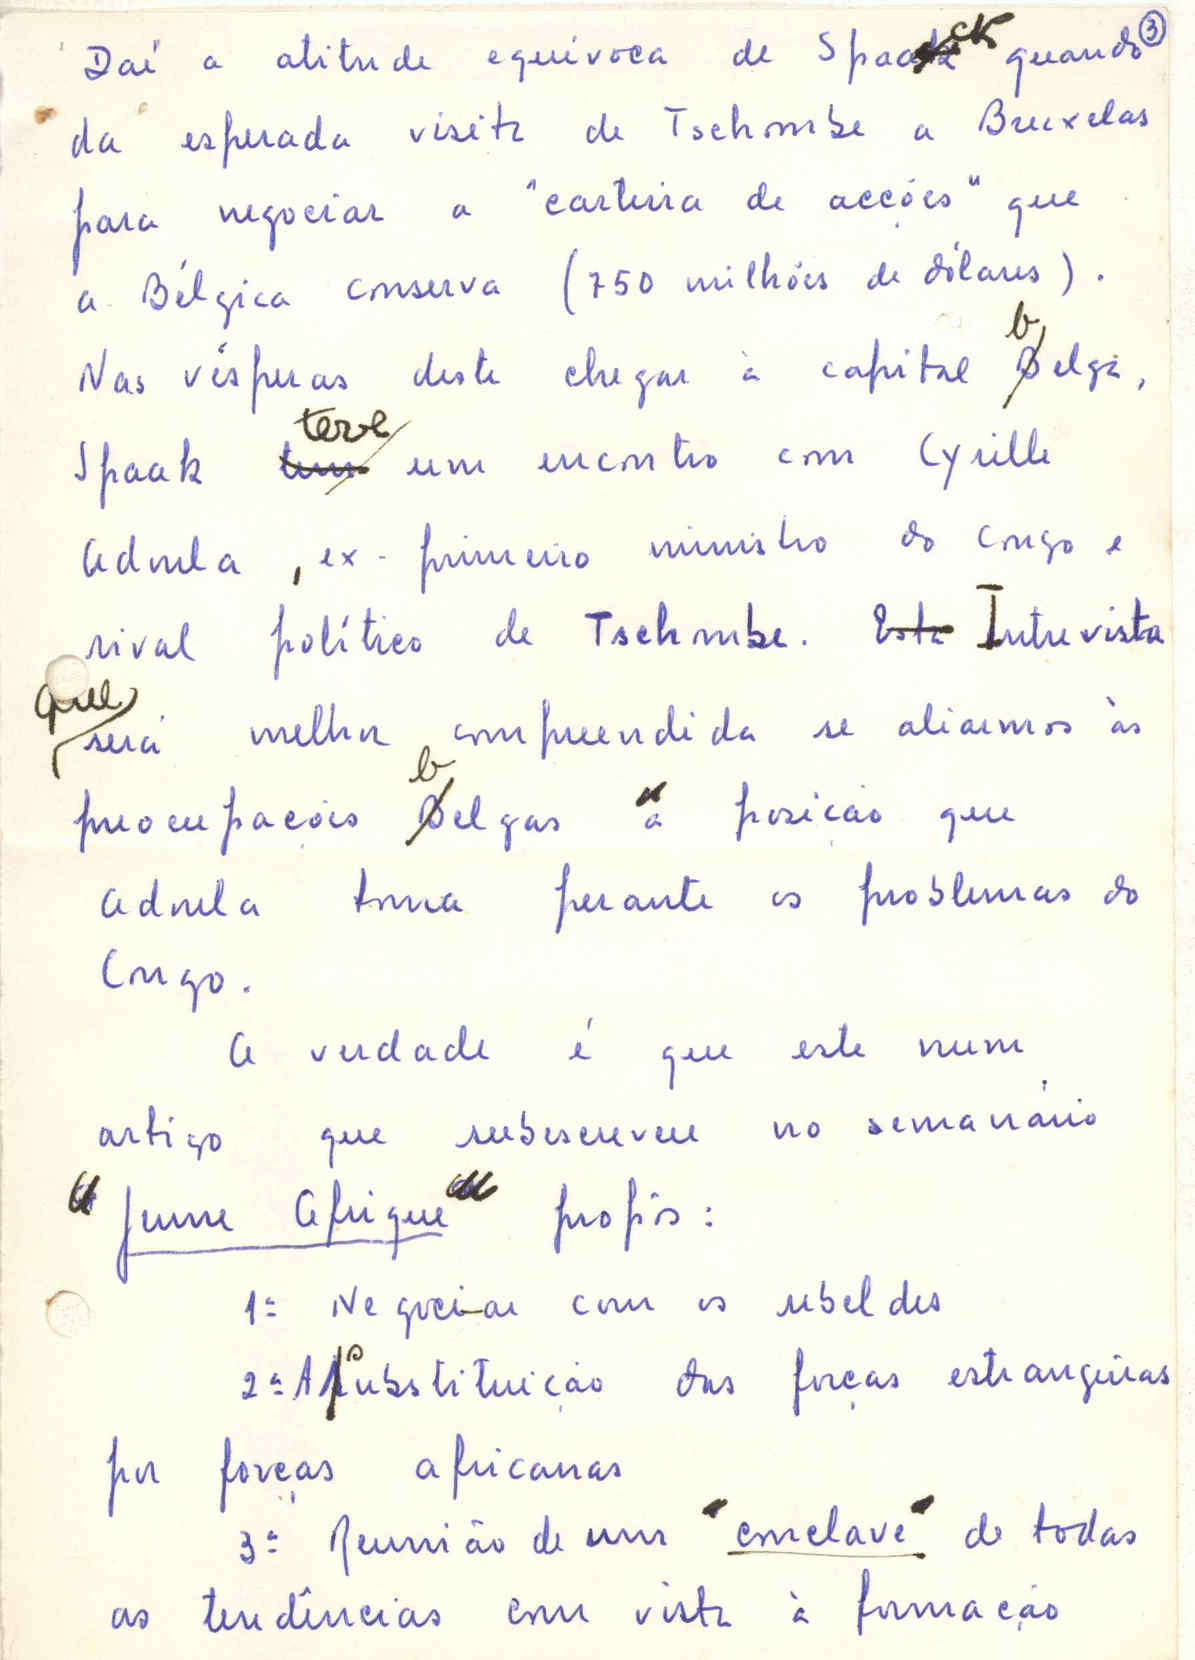 ③
Daí a atitude equívoca de Spaack quando
da esperada visita de Tschombe a Bruxelas
para negociar a "carteira de acções" que
a Bélgica conserva (750 milhões de dólares).
Nas vésperas deste chegar à capital belga,
Spaak teve um encontro com Cyrille
Adoula, ex-primeiro ministro do Congo e
rival político de Tschombe. Intrevista
que será melhor compreendida se aliarmos às
preocupações belgas a posição que
Adoula toma perante os problemas do
Congo.
A verdade é que este num
artigo que subescreveu no semanário
"Jeune Afrique" propôs:
1º Negociar com os rebeldes
2º A substituição das forças estrangeiras
por forças africanas
3º Reunião de um "conclave" de todas
as tendências com vista à formação